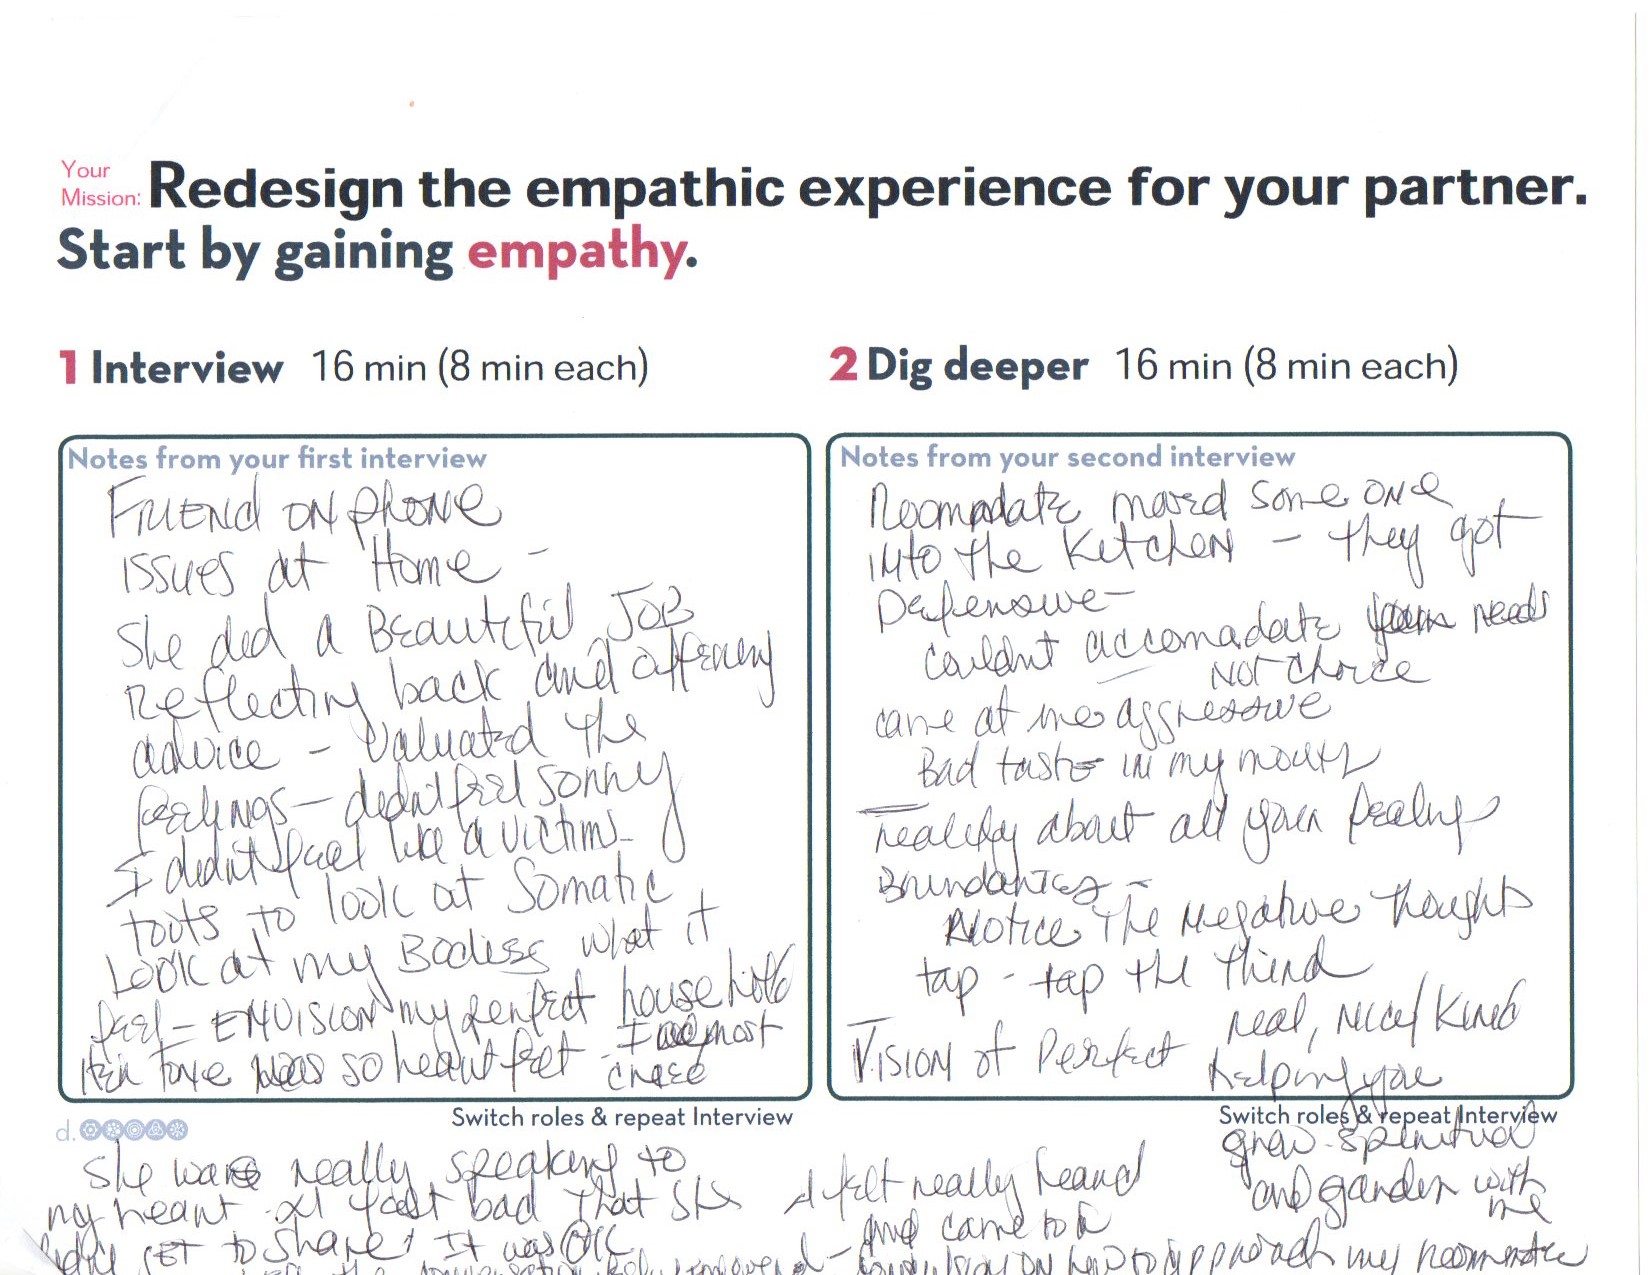 Your
Mission: Redesign the empathic experience for your partner.
Start by gaining empathy.
1 Interview 16 min (8 min each)
Notes from your first interview
Friend on phone
issues at Home -
She did a Beautiful JOB
Reflecting back and offering
advice - Valuated the
feelings - didn't feel sorry
I didn't feel like a victim -
to look at Somatic
Look at my Bodies what it
feel - ENVISION my perfect household
Her tone was so heart felt - I almost
cried
Switch roles & repeat Interview
d.
2 Dig deeper 16 min (8 min each)
Notes from your second interview
Roommate moved someone
into the Kitchen - they got
Defensive -
couldnt accomadate needs
Not choice
came at me aggressive
Bad taste in my mouth
about all your feelings
Boundaries -
Notice the negative thoughts
tap - tap the third
real, nice/kind
Vision of Perfect
helping you
Switch roles & repeat Interview
grow spiritual
and garden with
me
She was really speaking to
my heart - I felt bad that she
get to share, It was OK
I felt really heard
and came to a
conclusion on how to approach my roommate